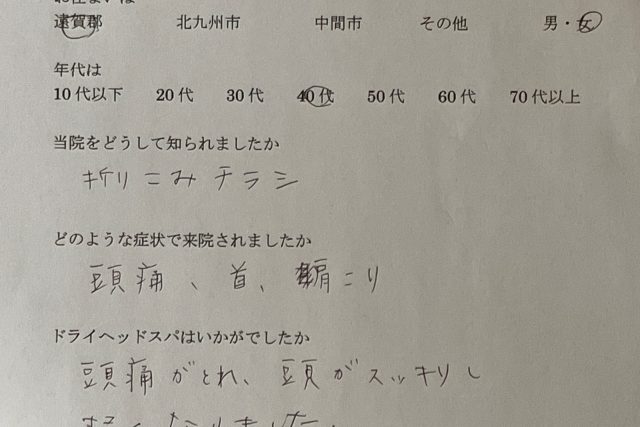 お住まいは
遠賀郡 北九州市 中間市 その他 男・女
年代は
10代以下 20代 30代 40代 50代 60代 70代以上
当院をどうして知られましたか
折りこみチラシ
どのような症状で来院されましたか
頭痛、首、肩こり
ドライヘッドスパはいかがでしたか
頭痛がとれ、頭がスッキリし
なりました。